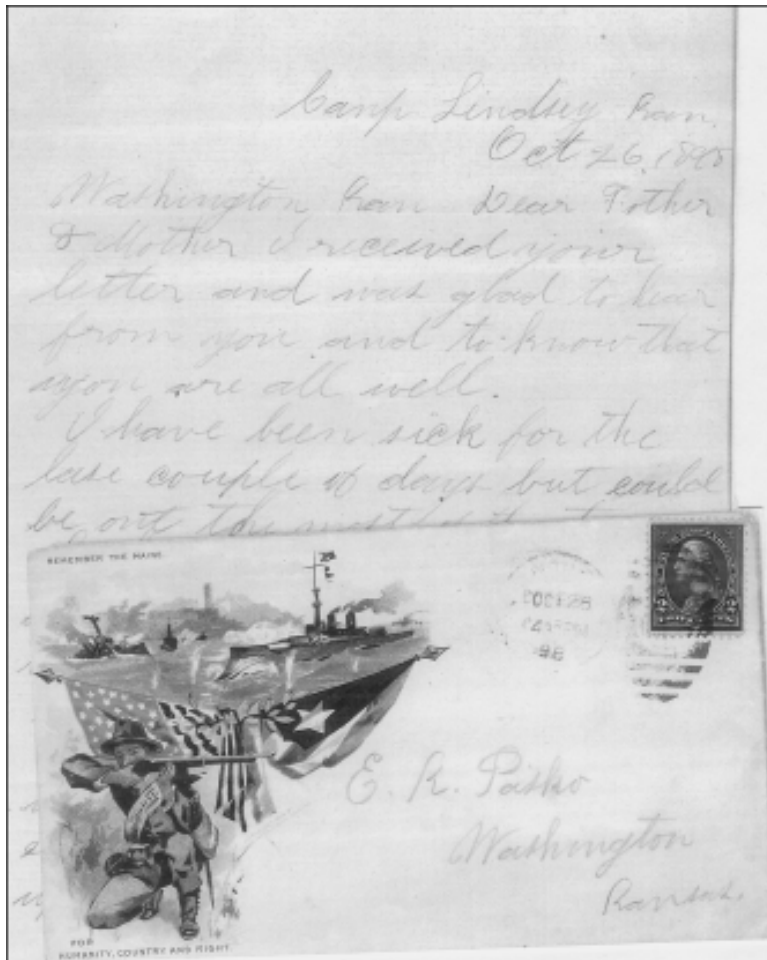 Camp Lindsey Kan.
Oct 26, 1898
Washington, Kan Dear Father
& Mother I received your
letter and was glad to hear
from you and to know that
you are all well.
I have been sick for the
last couple of days but could
be out the most
REMEMBER THE MAINE
OCT 28
98
2 2
E. R. Pasko
Washington
Kansas.
FOR
HUMANITY, COUNTRY AND RIGHT.